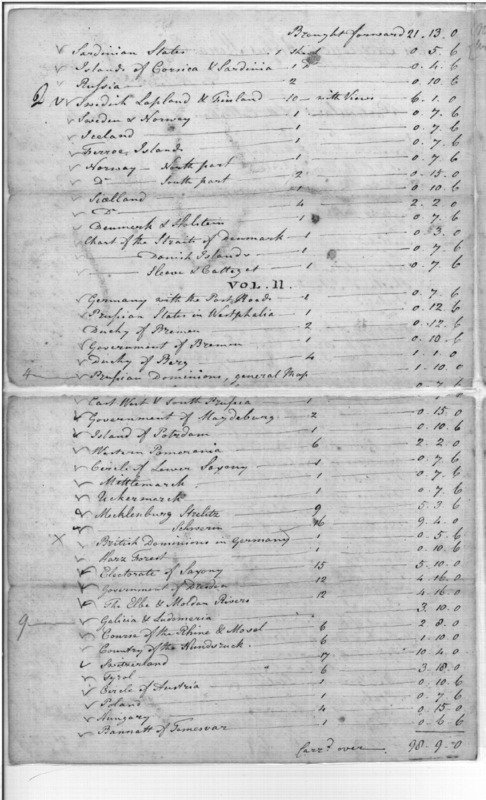 Brought forward 21. 13. 0
Sardinian States 1 sheet 0. 5. 6
Islands of Corsica & Sardinia 1 Do 0. 4. 6
Russia 2 0. 10. 6
2 Swedish Lapland & Finland 10 with Views 6. 1. 0
Sweden & Norway 1 0. 7. 6
Iceland 1 0. 7. 6
Ferroe Islands 1 0. 7. 6
Norway North part 1 0. 7. 6
Do South part 2 0. 15. 0
Sealland 1 0. 10. 6
Do 4 2. 2. 0
Denmark & Holstein 1 0. 7. 6
Chart of the Straits of Denmark 1 0. 3. 0
Danish Islands 1 0. 7. 6
Sleeve & Cattegat 1 0. 7. 6
VOL. II.
Germany with the Post Roads 1 0. 7. 6
Prussian States in Westphalia 1 0. 12. 6
Duchy of Bremen 2 0. 12. 6
Government of Bremen 1 0. 10. 6
Duchy of Berg 4 1. 1. 0
4 Prussian Dominions, general Map 1. 10. 0
East West & South Prussia 1 0. 7. 6
Government of Magdeburg 2 0. 15. 0
Island of Potzdam 1 0. 10. 6
Western Pomerania 6 2. 2. 0
Circle of Lower Saxony 1 0. 7. 6
Mittlemarck 1 0. 7. 6
Uckermarck 1 0. 7. 6
Mecklenburg Strelitz 9 5. 3. 6
Schwerin 16 9. 4. 0
British Dominions in Germany 1 0. 5. 6
Harz Forest 1 0. 10. 6
Electorate of Saxony 15 5. 10. 0
Government of Dresden 12 4. 16. 0
The Elbe & Moldau Rivers 12 4. 16. 0
9 Galicia & Lodomeria 3. 10. 0
Course of the Rhine & Mosel 6 2. 8. 0
Country of the Hundsruck 6 1. 10. 0
Switzerland 17 10. 4. 0
Tyrol 6 3. 18. 0
Circle of Austria 1 0. 10. 6
Poland 1 0. 7. 6
Hungary 4 0. 15. 0
Bannatt of Temeswar 1 0. 6. 6
Carrd over 98. 9. 0